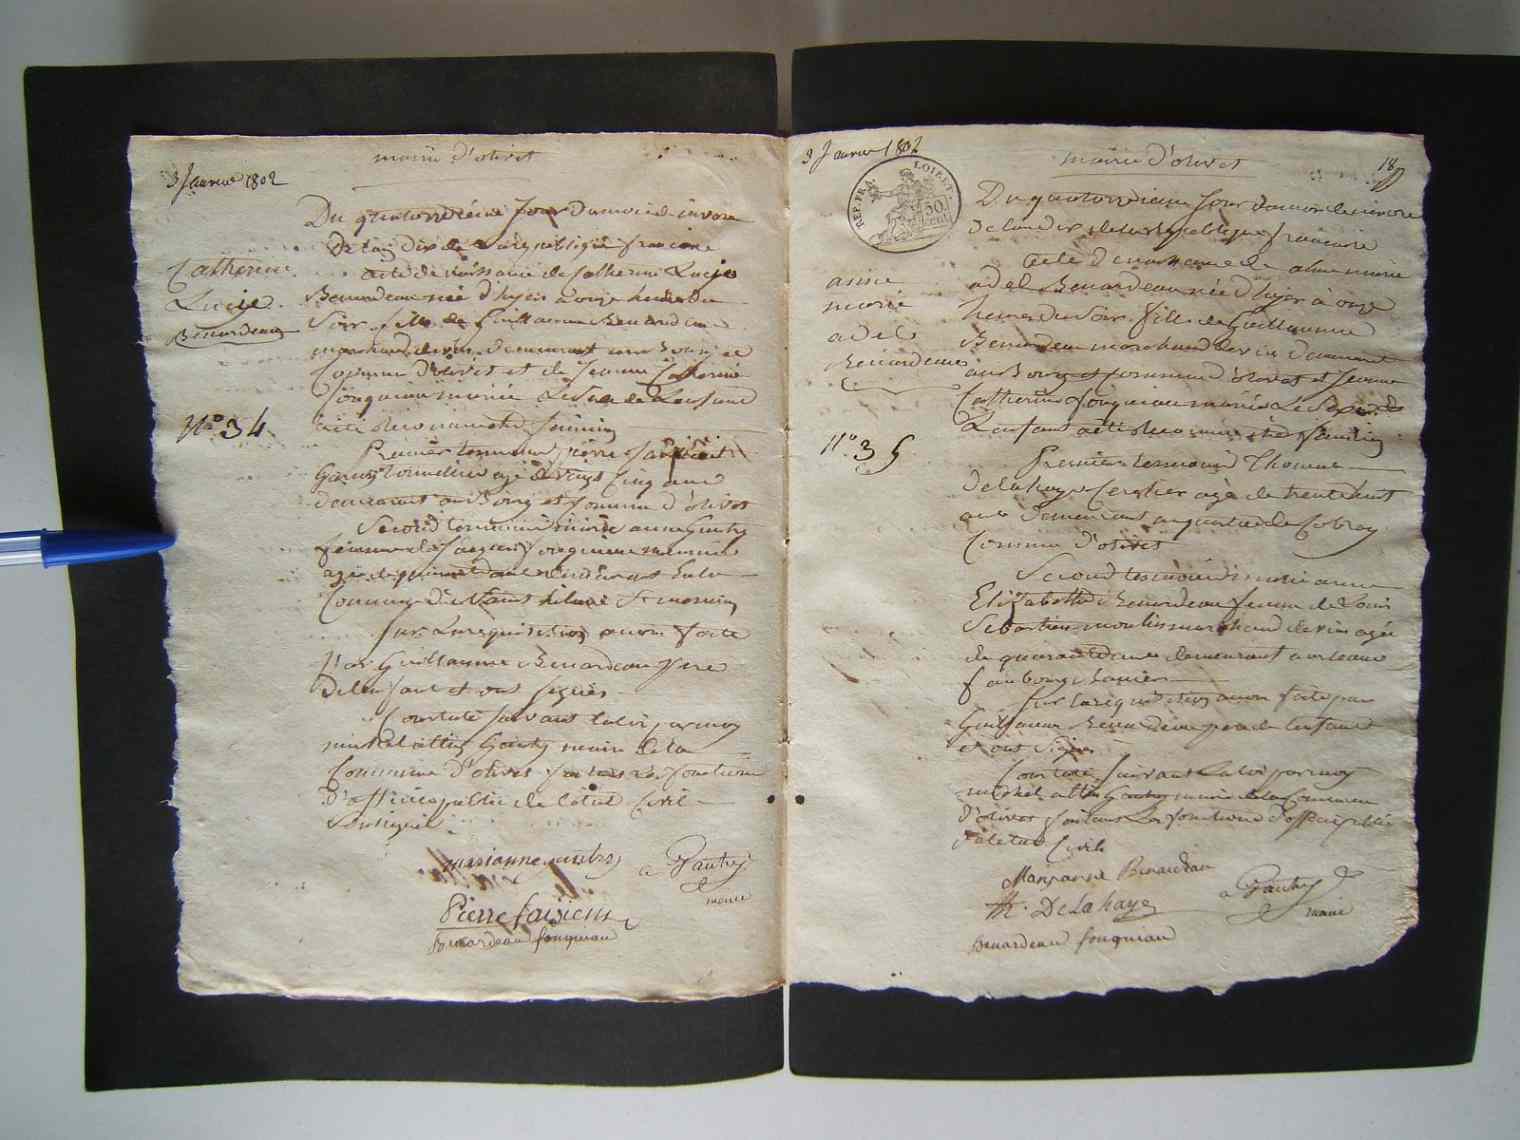 mairie d'olivet
3 Janvier 1802
Du quatorzième Jour du mois de nivose
De l'an dix de La république française
acte de naissance de Catherine Lucile
Benardeau née d'hyer à onze heures du
Soir fille de Guillaume Benardeau
marchand de vin demeurant au Bourg et
Commune d'olivet et de Jeanne Catherine
Fouquiau mariés Le Sexe de L'enfant
a été reconnu être féminin
Premier temoin pierre
Garçon tonnelier agé de vingt Cinq ans
demeurant au Bourg et Commune d'olivet
Second temoin marie anne Gautry
femme de
agée de
Commune de Saint hilaire St mesmin
Sur La requisition a nous faite
Par Guillaume Benardeau pere
De l'enfant et ont signés
Constaté suivant la loi par moy
michel Gautry maire de la
Commune d'olivet faisant Les fonctions
D'officier public de l'état Civil
Catherine
Lucile
Benardeau
N.o 34
marianne
a Gautry
maire
Pierre
Benardeau fouquiau
3 Janvier 1802
mairie d'olivet
18
REP. FRA. LOIRET
50 cent
Du quatorzième Jour du mois de nivose
de l'an dix de la république française
acte de naissance de anne marie
adel Benardeau née d'hyer à onze
heures du Soir fille de Guillaume
Benardeau marchand de vin demeurant
au Bourg et Commune d'olivet et Jeanne
Catherine Fouquiau mariés Le Sexe de
L'enfant a été reconnu être féminin
Premier temoin Thomas
Delahaye Cerclier agé de trente huit
ans demeurant au quartier de
Commune d'olivet
Second temoin marie anne
Elizabeth Benardeau femme de Louis
Sebastien moulin marchand de vin agée
de quarante ans demeurant a orleans
faubourg
Sur La requisition a nous faite par
Guillaume Benardeau pere de l'enfant
et ont Signés
Constaté Suivant La loi par moy
michel Gautry maire de la Commune
d'olivet faisant Les fonctions d'officier public
de l'état Civil
anne
marie
adel
Benardeau
N.o 35
Marianne Benardeau
Th. DeLahaye
a Gautry
maire
Benardeau fouquiau